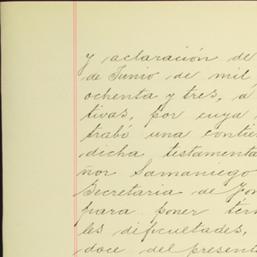 y aclaración de
de Junio de mil
ochenta y tres, á
tivas, por cuya
trabó una contien
dicha testamenta
ñor Samaniego
Secretaria de Fo
para poner tér
les dificultades,
doce del present